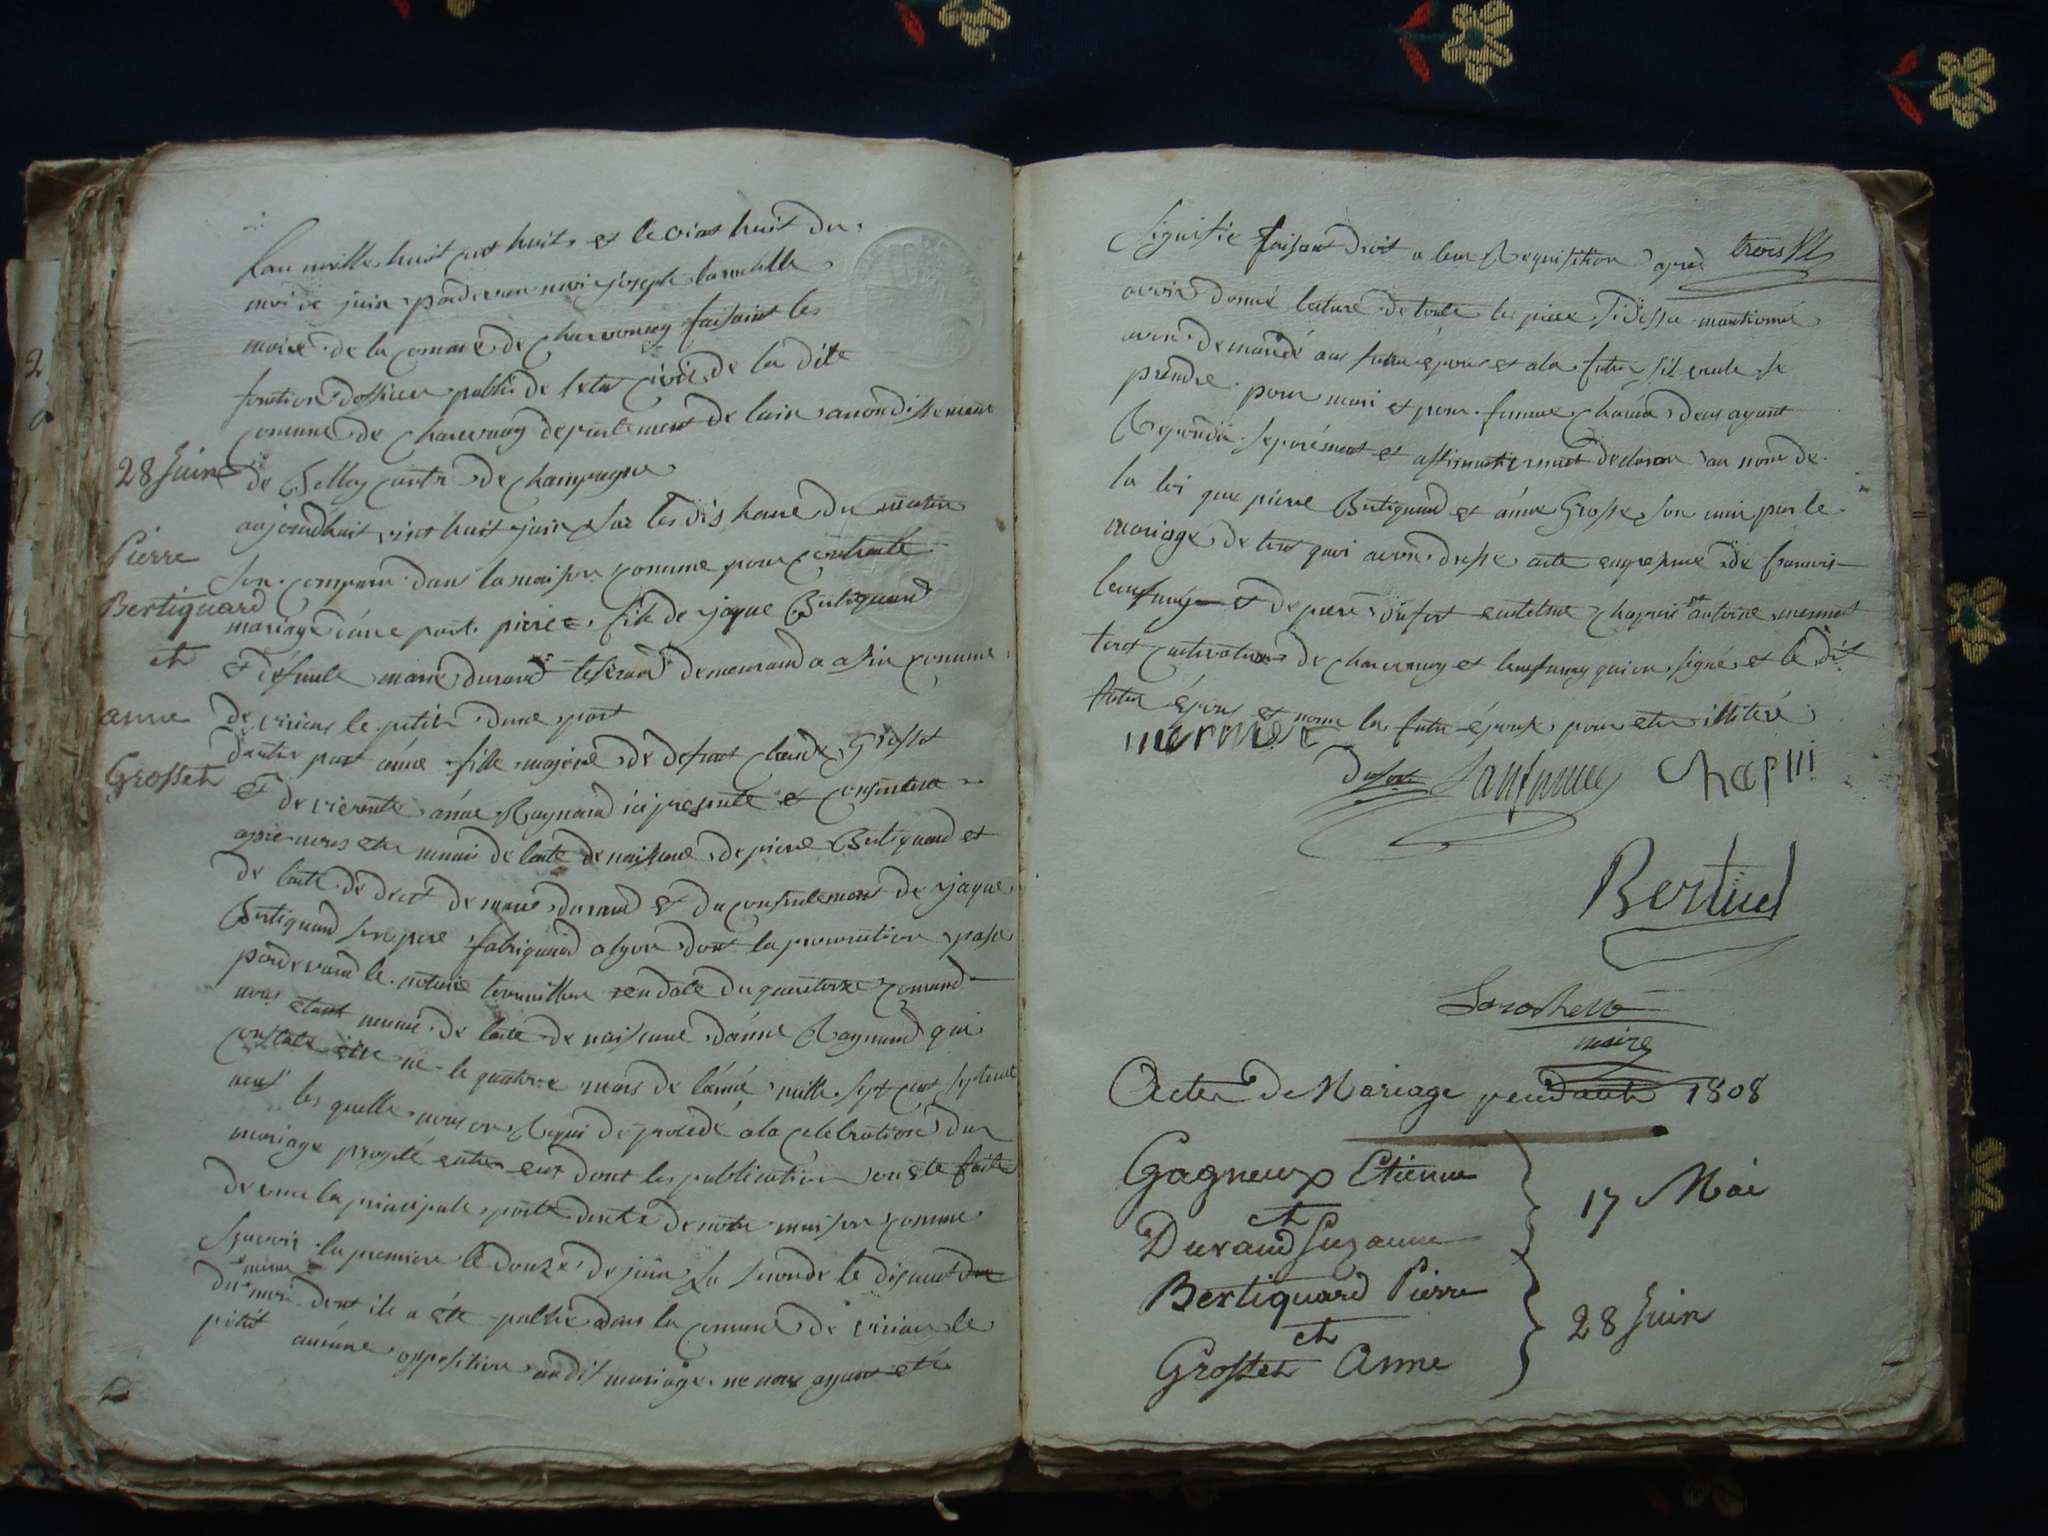 lan mille huit cent huit et le vint huit du
moi de juin pardevan moi joseph larochette
maire de la comune de Charvonay faisant les
fonction dofficier public de letat civil de la dite
comune de Charvonay departement de lain arondissement
28 Juin de Belley canton de Champagne
aujourdhuit vint huit juin sur les dis heure du matin
Pierre
son comparu dans la maison comune pour contracte
Bertiquard
mariage dune part pierre fils de jaque Bertiquard
et
et defunte marie durand tiserand demeurand a comune
anne
de virieu le petit dune part
dautre part anne fille majeure de defunt claude Grosset
Grosset
et de vivente anne Raynaud ici presente et consentente
apre nous etre muni de lacte de naisance de pierre Bertiquard et
de lacte de deces de marie durand et du consentement de jaque
Bertiquard son pere fabriquand a lyon dont la procuration pase
pardevand le notaire en date du quatorze
nous etant muni de lacte de naisance danne Raynaud qui
constate etre ne le quatorze mars de lanné mille sept cent septente
neuf les quelle nous on Requi de procede a la celebration du
mariage projeté entre eux dont les publication on ete faite
devant la principale porte dentré de notre maison comune
Scavoir la premiere le douze de juin la seconde le dixneuf
du meme moi dont ils a été publié dans la comune de virieu le
petit aucune opposition audit mariage ne nous ayant eté
Signifie faisant droit a leur Requisition apres
avoir donné lecture de toute les piece sidessu mantionné
avon demandé au futur epoux et a la future sil veule se
prendre pour mari et pour femme chacun deux ayant
Repondu separément et affirmativement declaron au nom de
la loi que pierre Bertiquard et anne Grosset son unis par le
mariage de tout quoi avons dresse acte en presence de francois
lanfrey et de pierre dufort antelme chapuis et antoine mermet
tout cultivateur de charvonay et lanfrey qui on signé et le dit
futur époux et nom la future épouse pour etre illitéré
mermet
Dufort Lanfrey Chapui
Bertiud
Larochette
maire
Actes de Mariage pendant 1808
Gagneux Etienne
et
17 Mai
Durand Suzanne
Bertiquard Pierre
et
28 Juin
Grosset Anne